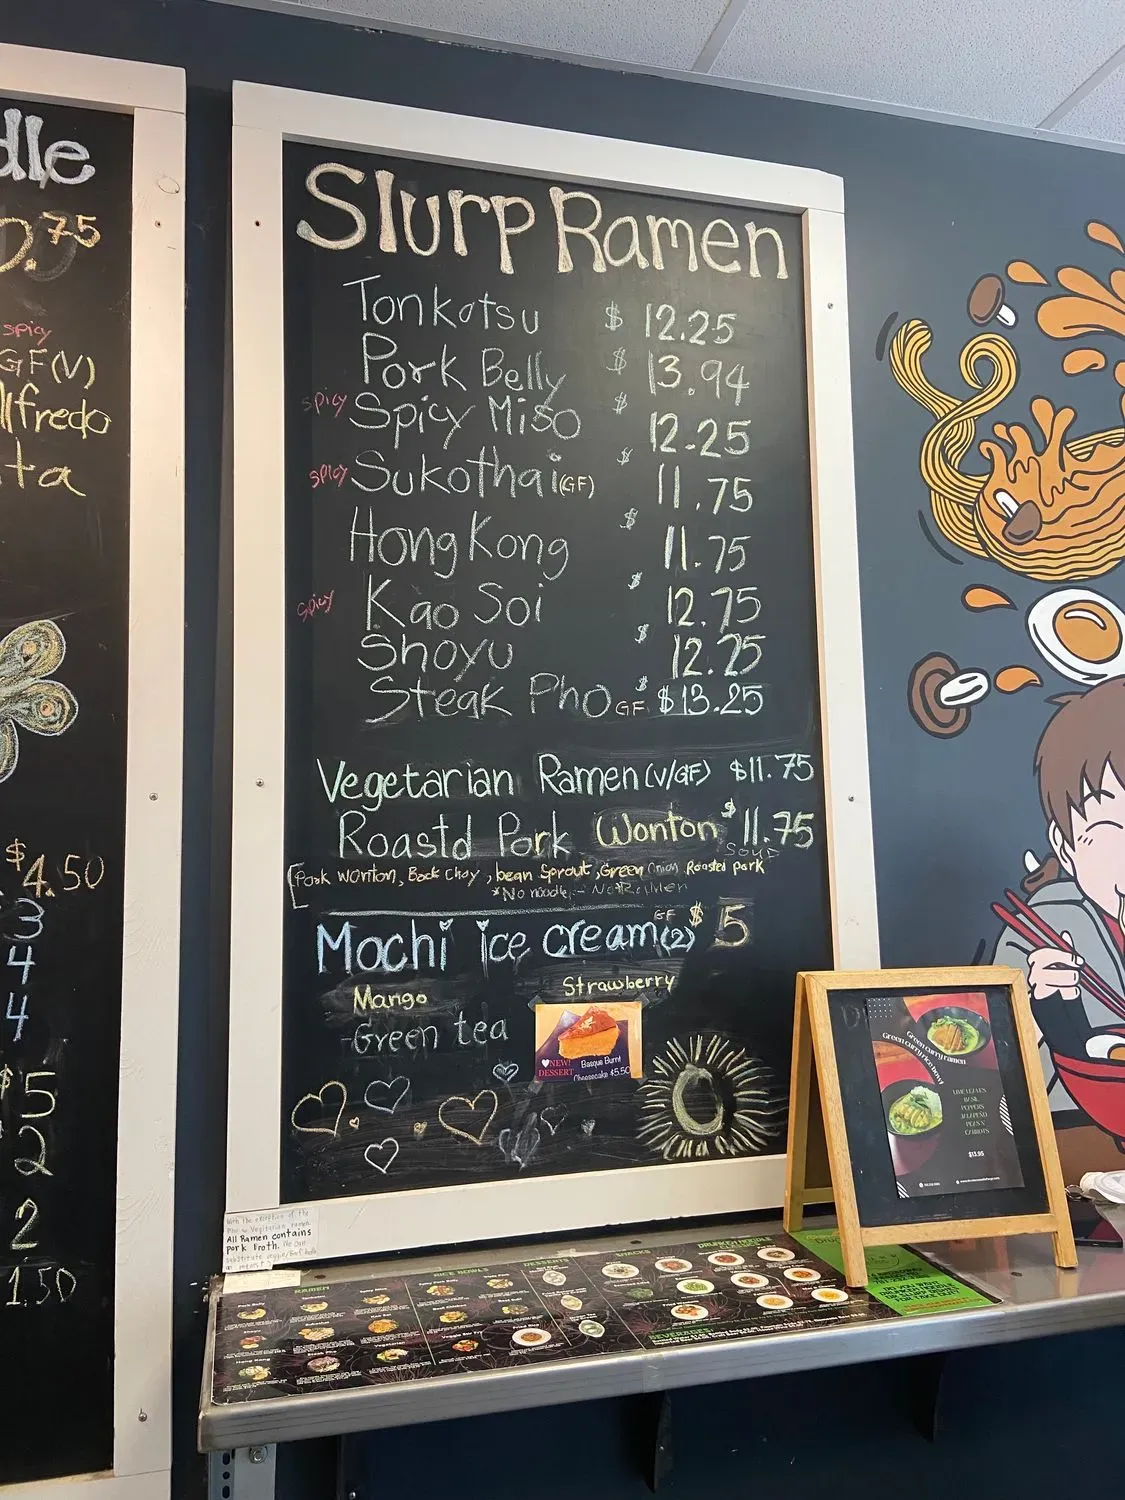 dle
0.75
spicy
GF(V)
lfredo
ta
$4.50
3
4
4
$5
2
2
1.50
Slurp Ramen
Tonkotsu $ 12.25
Pork Belly $ 13.94
spicy Spicy Miso $ 12.25
spicy Sukothai (GF) $ 11.75
Hong Kong $ 11.75
spicy Kao Soi $ 12.75
Shoyu $ 12.25
Steak Pho GF $ $13.25
Vegetarian Ramen (V/GF) $11.75
Roastd Pork Wonton Soup $11.75
[Pork Wonton, Bock Choy, bean Sprout, Green Onion Roasted pork
*No noodle - Not Ramen
Mochi ice cream (2) GF $ 5
Mango Strawberry
-Green tea
NEW! DESSERT
Basque Burnt
Cheesecake $5.50
Green curry ramen
Green curry rice bowl
LIME LEAVES
BASIL
PEPPERS
JALAPEÑO
PEAS N
CARROTS
$13.95
With the exception of the
All Ramen contains
pork broth. We can
RAMEN
RICE BOWLS
DESSERTS
SNACKS
BEVERAGES
Hong Kong
Steak Pho
Vegetarian